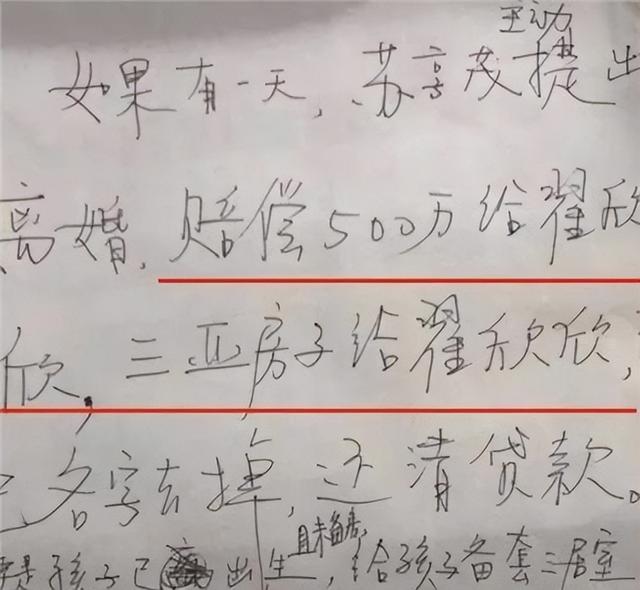 如果有一天,苏享茂主动提出
离婚,赔偿500万给翟欣
欣,三亚房子给翟欣欣,
名字去掉,还清贷款。
孩子已出生,且未备房,给孩子备套三居室